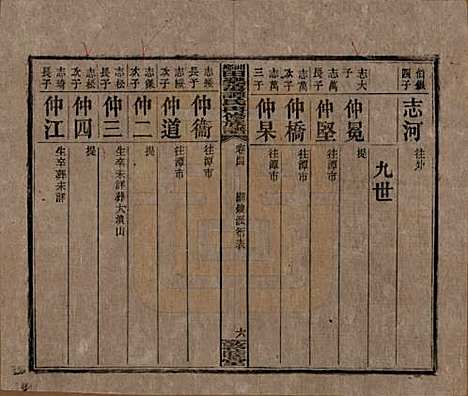 伯
四子
志河
往外
九世
志大
子
仲冕
提
志萬
長子
仲堅
往潭市
志萬
次子
仲橋
往潭市
志萬
三子
仲杲
往潭市
卷四
派系表
六
志綏
長子
仲衜
往潭市
志綏
次子
仲道
往潭市
志僕
次子
仲二
提
志松
長子
仲三
生卒未詳葬大濆山
志松
次子
仲四
提
志琦
長子
仲江
生卒葬未詳